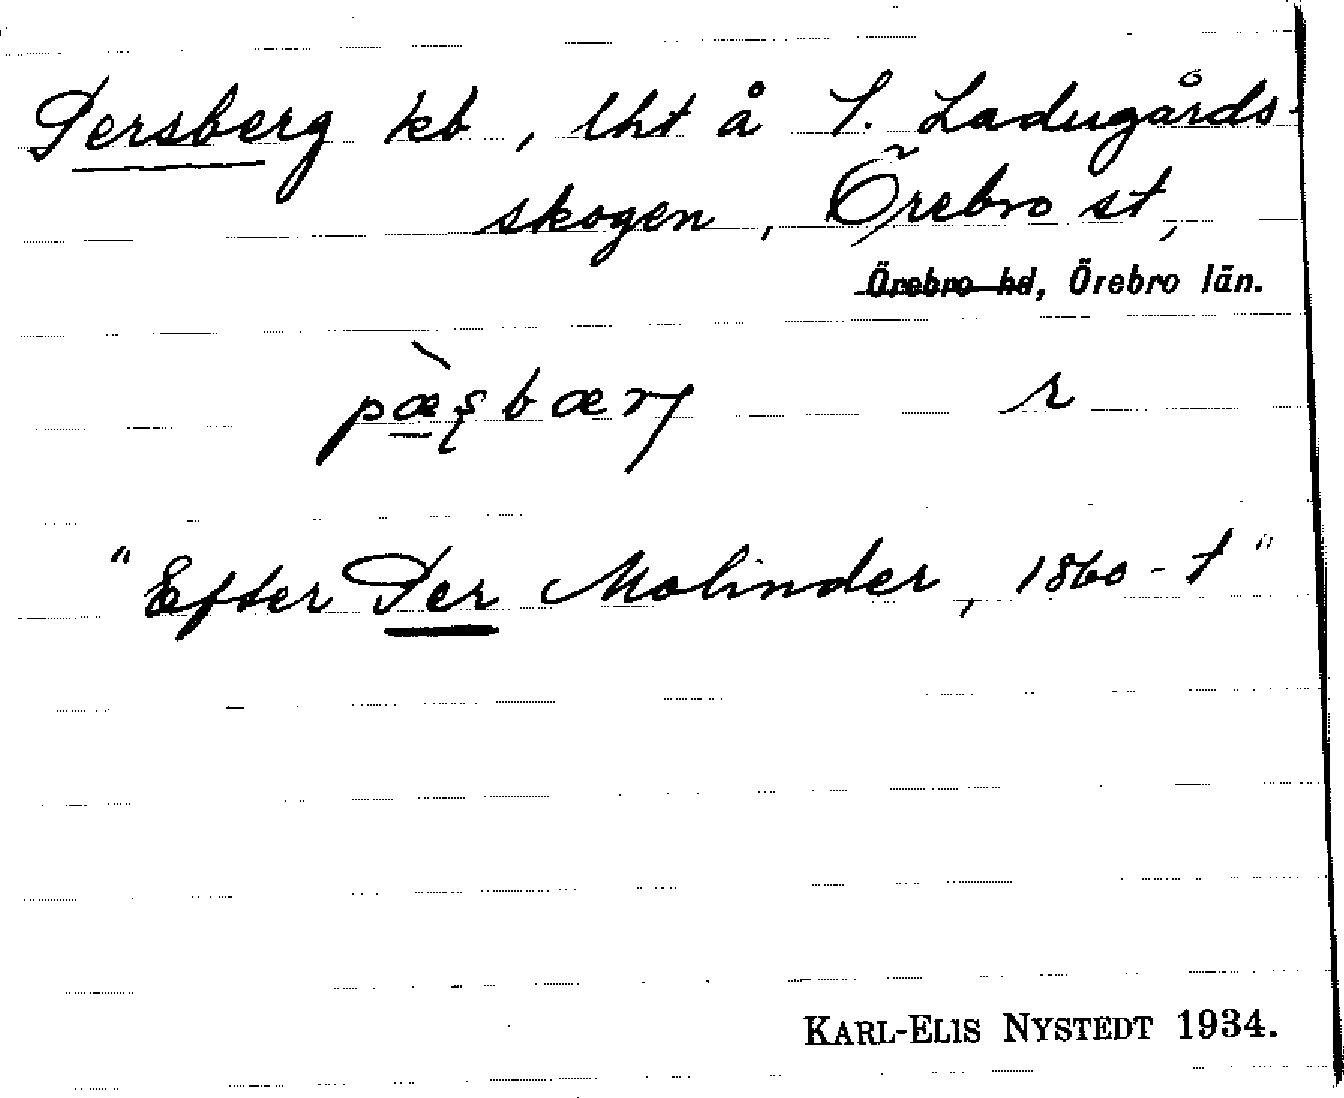 Persberg kb, lht å S. Ladugårds-
skogen, Örebro st,
Örebro hd, Örebro län.
pæ̀ʂbærj r
"Efter Per Molinder, 1860-t"
KARL-ELIS NYSTEDT 1934.